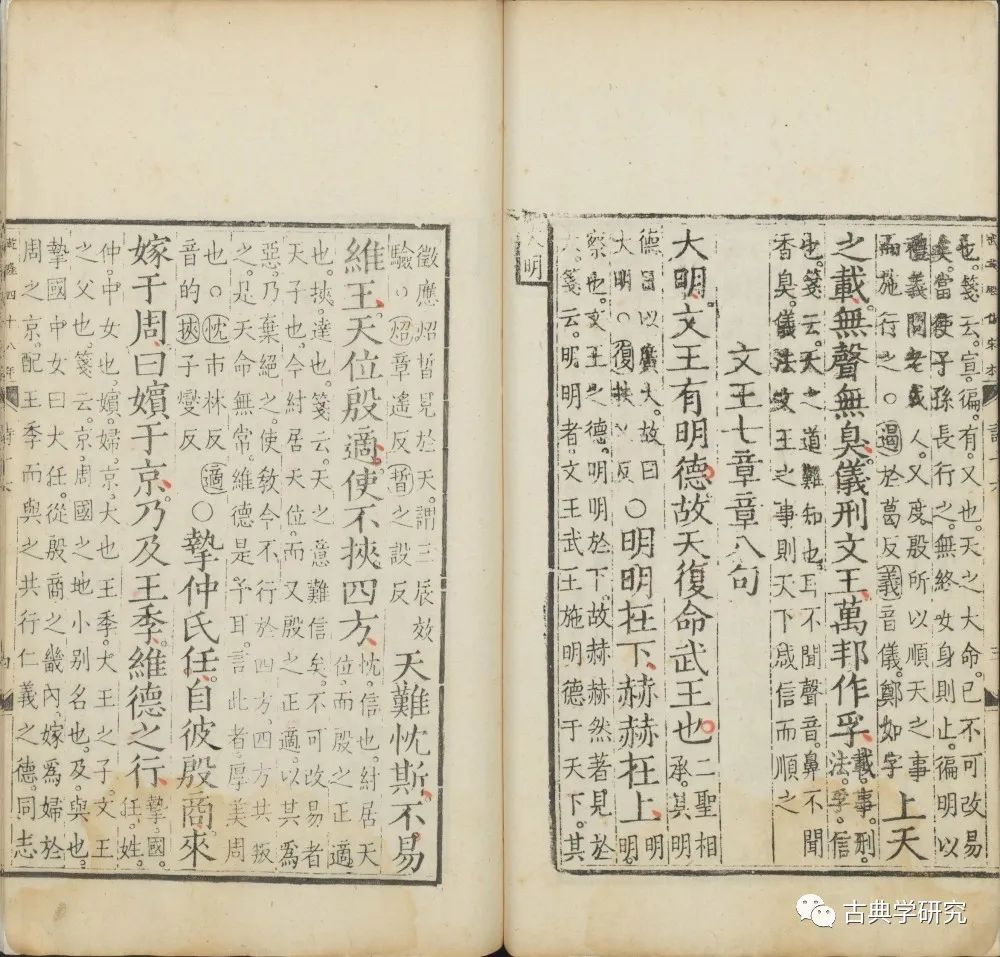 武英殿仿宋本
也箋云宣徧有又也天之大命已不可改易
矣當使子孫長行之無終女身則止徧明以
禮義問老成人又度殷所以順天之事
而施行之〇遏於葛反義音儀鄭如字
上天
之載無聲無臭儀刑文王萬邦作孚
載事刑
法孚信
也箋云天之道難知也耳不聞聲音鼻不聞
香臭儀法文王之事則天下咸信而順之
文王七章章八句
大明文王有明德故天復命武王也
二聖相
承其明
德日以廣大故曰
大明〇復扶又反
〇明明在下赫赫在上
明
明
察也文王之德明明於下故赫赫然著見於
天箋云明明者文王武王施明德于天下其
大明
徵應炤晢見於天謂三辰效
驗〇炤章遙反晢之設反
天難忱斯不易
維王天位殷適使不挾四方
忱信也紂居天
位而殷之正適
也挾達也箋云天之意難信矣不可改易者
天子也今紂居天位而又殷之正適以其為
惡乃棄絕之使教令不行於四方四方共叛
之是天命無常維德是予耳言此者厚美周
也〇忱市林反適
音的挾子燮反
〇摯仲氏任自彼殷商來
嫁于周曰嬪于京乃及王季維德之行
摯國
任姓
仲中女也嬪婦京大也王季大王之子文王
之父也箋云京周國之地小別名也及與也
摯國中女曰大任從殷商之畿內嫁為婦於
周之京配王季而與之共行仁義之德同志
乾隆四十八年
古典学研究